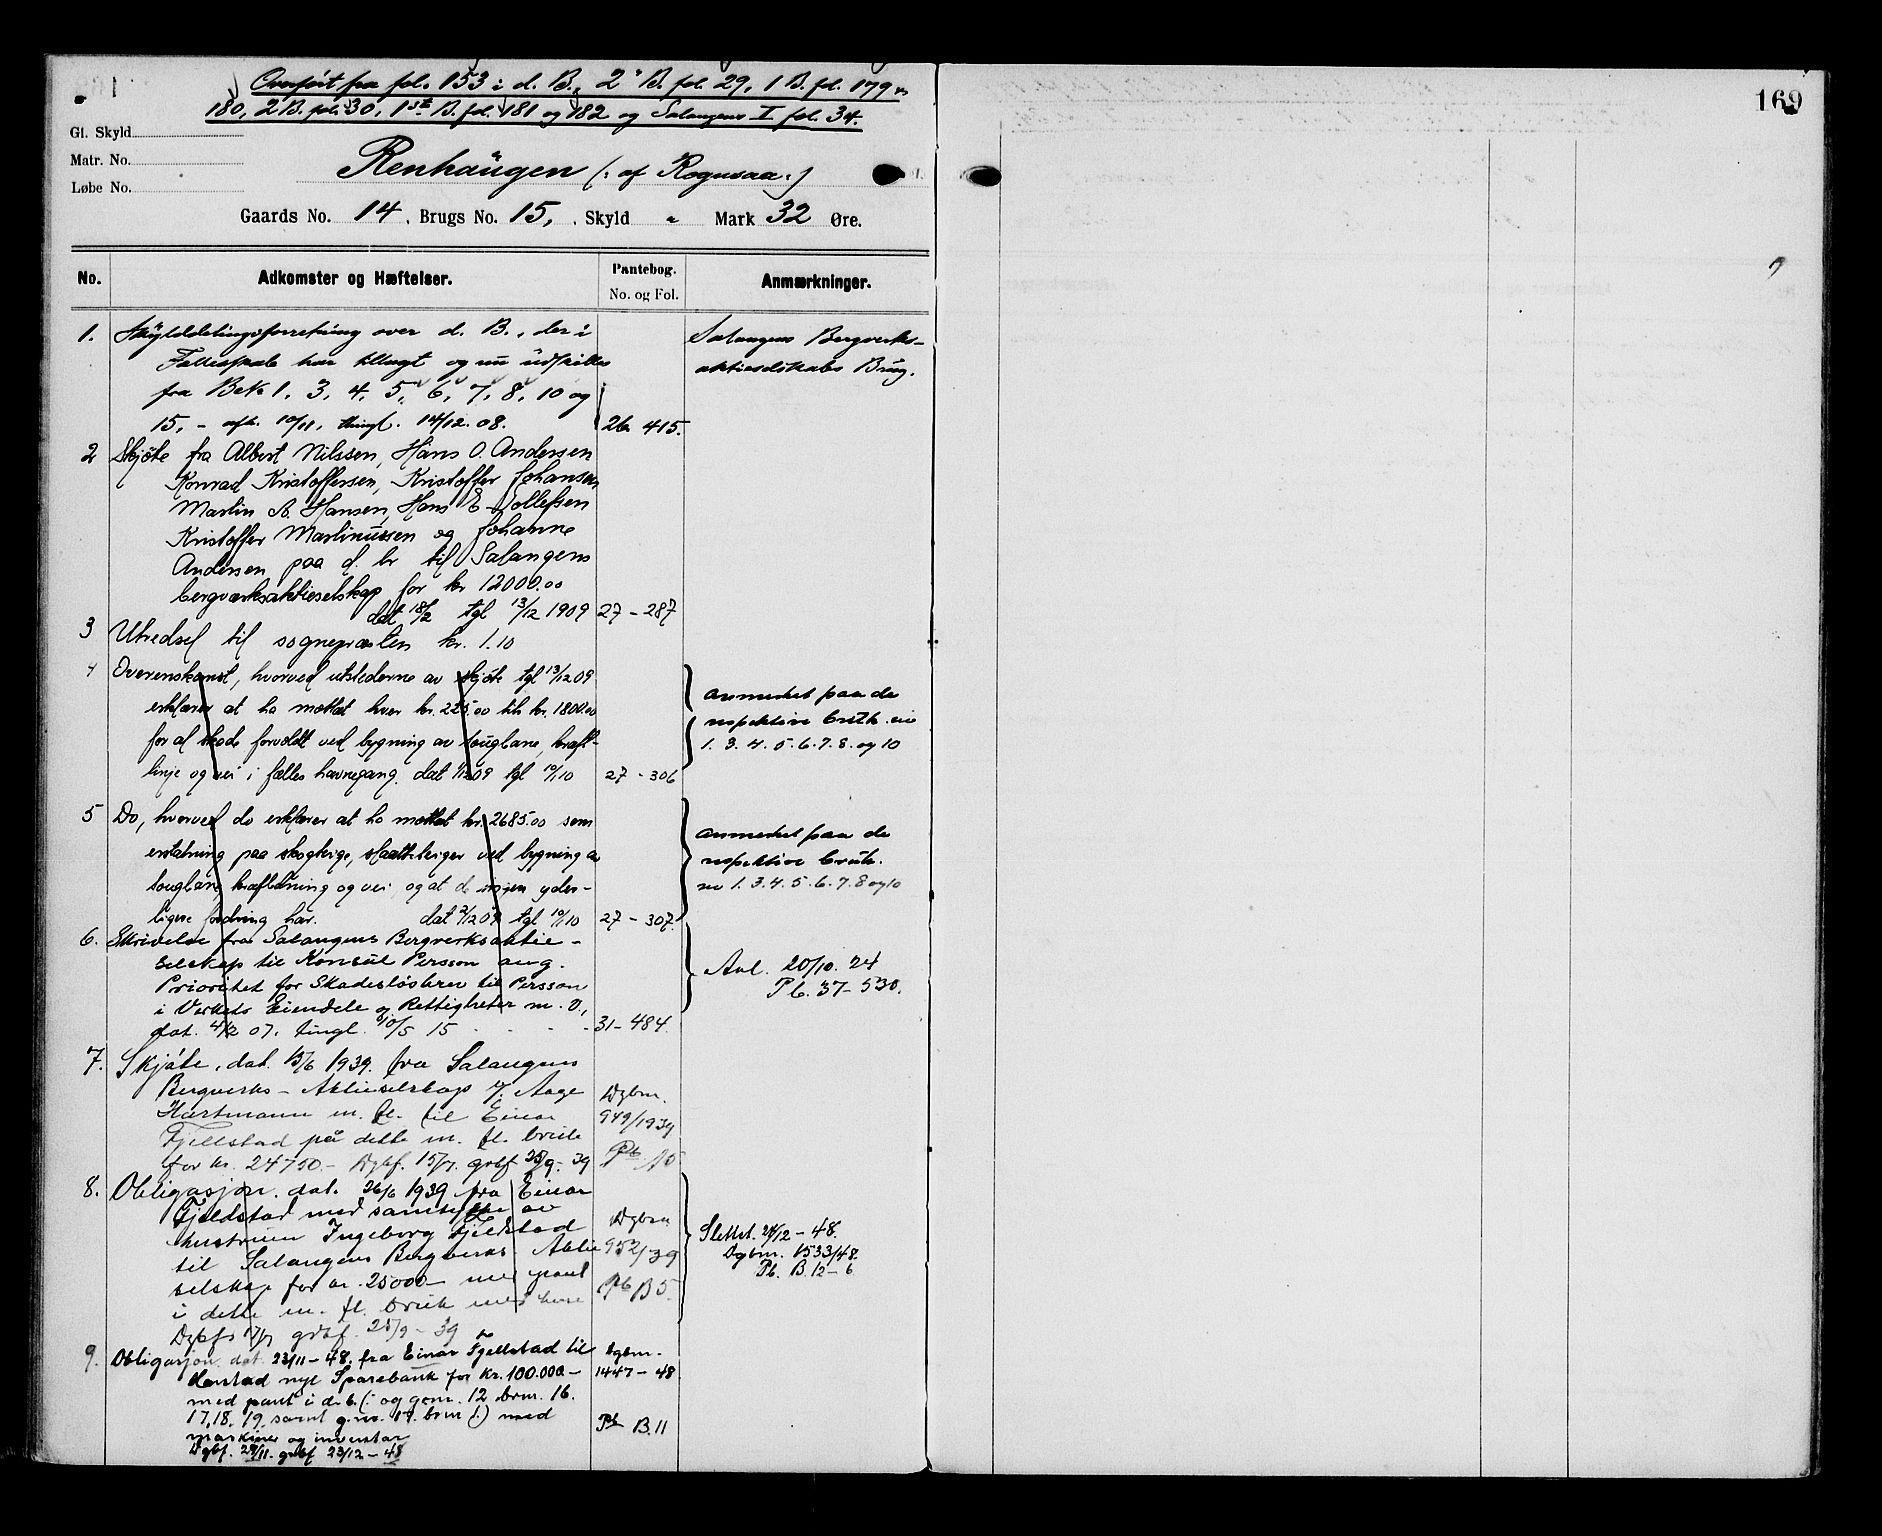 Overført fra fol. 153 i d. B., 2' B. fol. 29, 1 B. fol. 179 og
180, 2 B. fol. 30, 1ste B. fol. 181 og 182 og Salangens I fol. 34.
169
Gl. Skyld
Matr. No.
Løbe No.
Renhaugen (: af Rognsaa :)
Gaards No. 14, Brugs No. 15, Skyld " Mark 32 Øre.
No. Adkomster og Hæftelser. Pantebog. No. og Fol. Anmærkninger.
1. Skylddelingsforretning over d. B., der i
Fællesskab har tillagt og nu udskilles
fra Bek 1, 3, 4, 5, 6, 7, 8, 10 og
15, - afh. 10/11, thingl. 14/12 08. 26 415.
Salangens Bergverks-
aktieselskabs Brug.
2 Skjøte fra Albert Nilssen, Hans O. Andersen
Konrad Kristoffersen, Kristoffer Johansen
Martin A. Hansen, Hans E Tollefsen
Kristoffer Martinussen og Johanne
Andersen paa d. br til Salangens
bergværksaktieselskap for kr 12000.00
dat 18/2 tgl 13/12 1909 27 - 287
3 Utredsel til sognepræsten kr. 1.10
4 Overenskomst, hvorved utstederne av skjøte tgl 13/12 09
erklærer at ha mottat hver kr. 225.00 tils kr. 1800.00
for al skade forvoldt ved bygning av tougbane, kraft-
linje og vei i fælles havnegang. dat 1/12 09 tgl 10/1 10 27 - 306
anmerket paa de
respektive bruk. nr
1. 3. 4. 5. 6. 7. 8. og 10
5 Do, hvorved do erklærer at ha mottat kr. 2685.00 som
erstatning paa skogteige, slaatteteiger ved bygning a
tougbane, kraftledning og vei, og at de ingen yder-
ligere fordring har. dat 2/12 09 tgl 10/1 10 27 - 307.
anmerket paa de
respektive bruk.
nr 1. 3. 4. 5. 6. 7. 8 og 10
6. Skrivelse fra Salangens Bergverksaktie-
selskap til Konsul Persson ang.
Prioritet for Skadesløsbrev til Persson
i Verkets Eiendele og Rettigheter m. v.,
dat. 4/12 07. tingl. 10/5 15 - - - - 31 - 484.
Avl. 20/10. 24
Pb. 37 - 530.
7. Skjøte, dat. 15/6 1939. fra Salangens
Bergverks - Aktieselskap v/ Aage
Hartmann m. fl. til Einar
Fjellstad på dette m. fl. bruk
for kr. 24750.- Dgbf. 15/7. grbf 25/9 - 39
Dgbnr.
949/1939
Pb A5
8. Obligasjon. dat. 26/6 1939 fra Einar
Fjeldstad med samtykke av
hustruen Ingeborg Fjeldstad
til Salangens Bergverks Aktie
selskap for kr. 25000.- med pant
i dette m. fl. bruk med huse
Dgbf. 17/7 grbf. 25/9 - 39
Dgbnr
952/39
Pb B5.
Slettet. 24/12 - 48.
Dgbnr. 1533/48.
Pb. B. 12 - 6
9. Obligasjon. dat. 23/11 - 48. fra Einar Fjellstad til
Harstad nye Sparebank for kr. 100.000.-
med pant i d. b. (: og gnr. 12 bnr. 16.
17, 18, 19, samt g.nr. 17. bnr 1.) med
maskiner og inventar
Dgbf. 29/11. grbf 23/12 - 48
Dgbnr.
1447 - 48
Pb B. 11